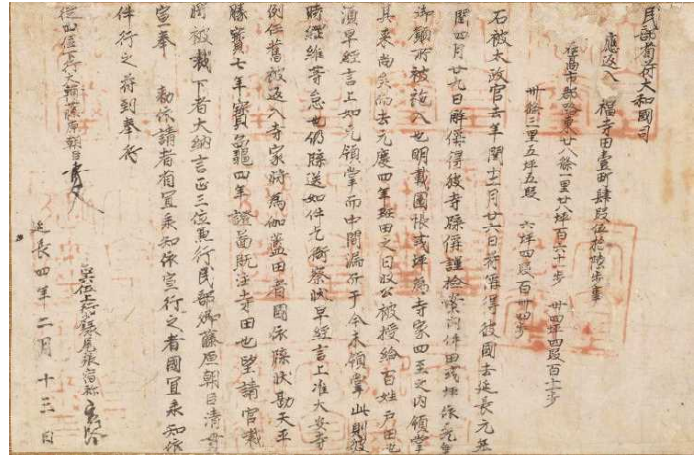 民部省符大和國司
應返入 福寺田壹町肆段伍拾陸歩事
在高市郡路東廿八條一里廿八坪百六十步 卅四坪四段百十步
卅條三里五坪五段 六坪四段百卅四步
右被太政官去年閏十二月廿六日符偁得彼國去延長元年
閏四月廿九日解偁得彼寺牒偁謹檢案内件田或坪依先年
御願所被施入也明載圖帳或坪為寺家四至之内領掌
其來尚矣而去元慶四年班田之日收公被授給百姓戸田也
須早經言上如先領掌而中間漏于今未領掌此則彼
時綱維等怠也仍牒送如件乞衙察狀早經言上准大安寺
例任舊被返入寺家將為伽藍田者國依牒狀勘天平
勝寶七年寶龜四年證圖既注寺田也望請官裁
被裁下者大納言正三位兼行民部卿藤原朝臣清貫
宣奉 勅依請者省宜承知依宣行之者國宜承知依
件行之符到奉行
從四位下行大輔藤原朝臣
延長四年二月十三日